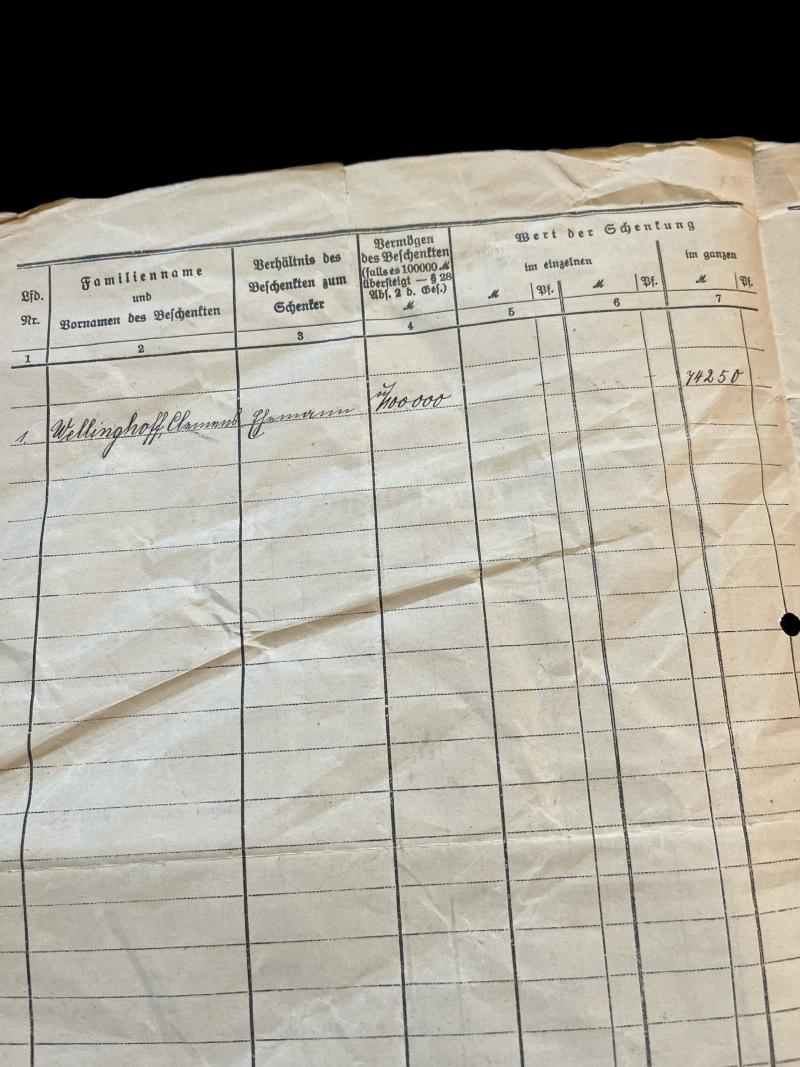 Wert der Schenkung
im einzelnen
im ganzen
Lfd.
Nr.
Familienname
und
Vornamen des Beschenkten
Verhältnis des
Beschenkten zum
Schenker
Vermögen
des Beschenkten
(falls es 100000 ℳ
übersteigt — § 28
Abs. 2 d. Ges.)
ℳ
ℳ Pf. ℳ Pf. ℳ Pf.
1 2 3 4 5 6 7
74250
1. Wellinghoff, Clemens Ehemann 100000